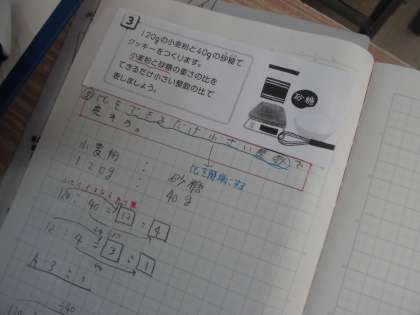 3
120gの小麦粉と40gの砂糖で
クッキーをつくります。
小麦粉と砂糖の重さの比を
できるだけ小さい整数の比で
表しましょう。
砂糖
比をできるだけ小さい整数で
表そう。
比を簡単にする
小麦粉 : 砂糖
120g : 40g
120 : 40 = 12 : 4
12 : 4 = 3 : 1
A. 3 : 1